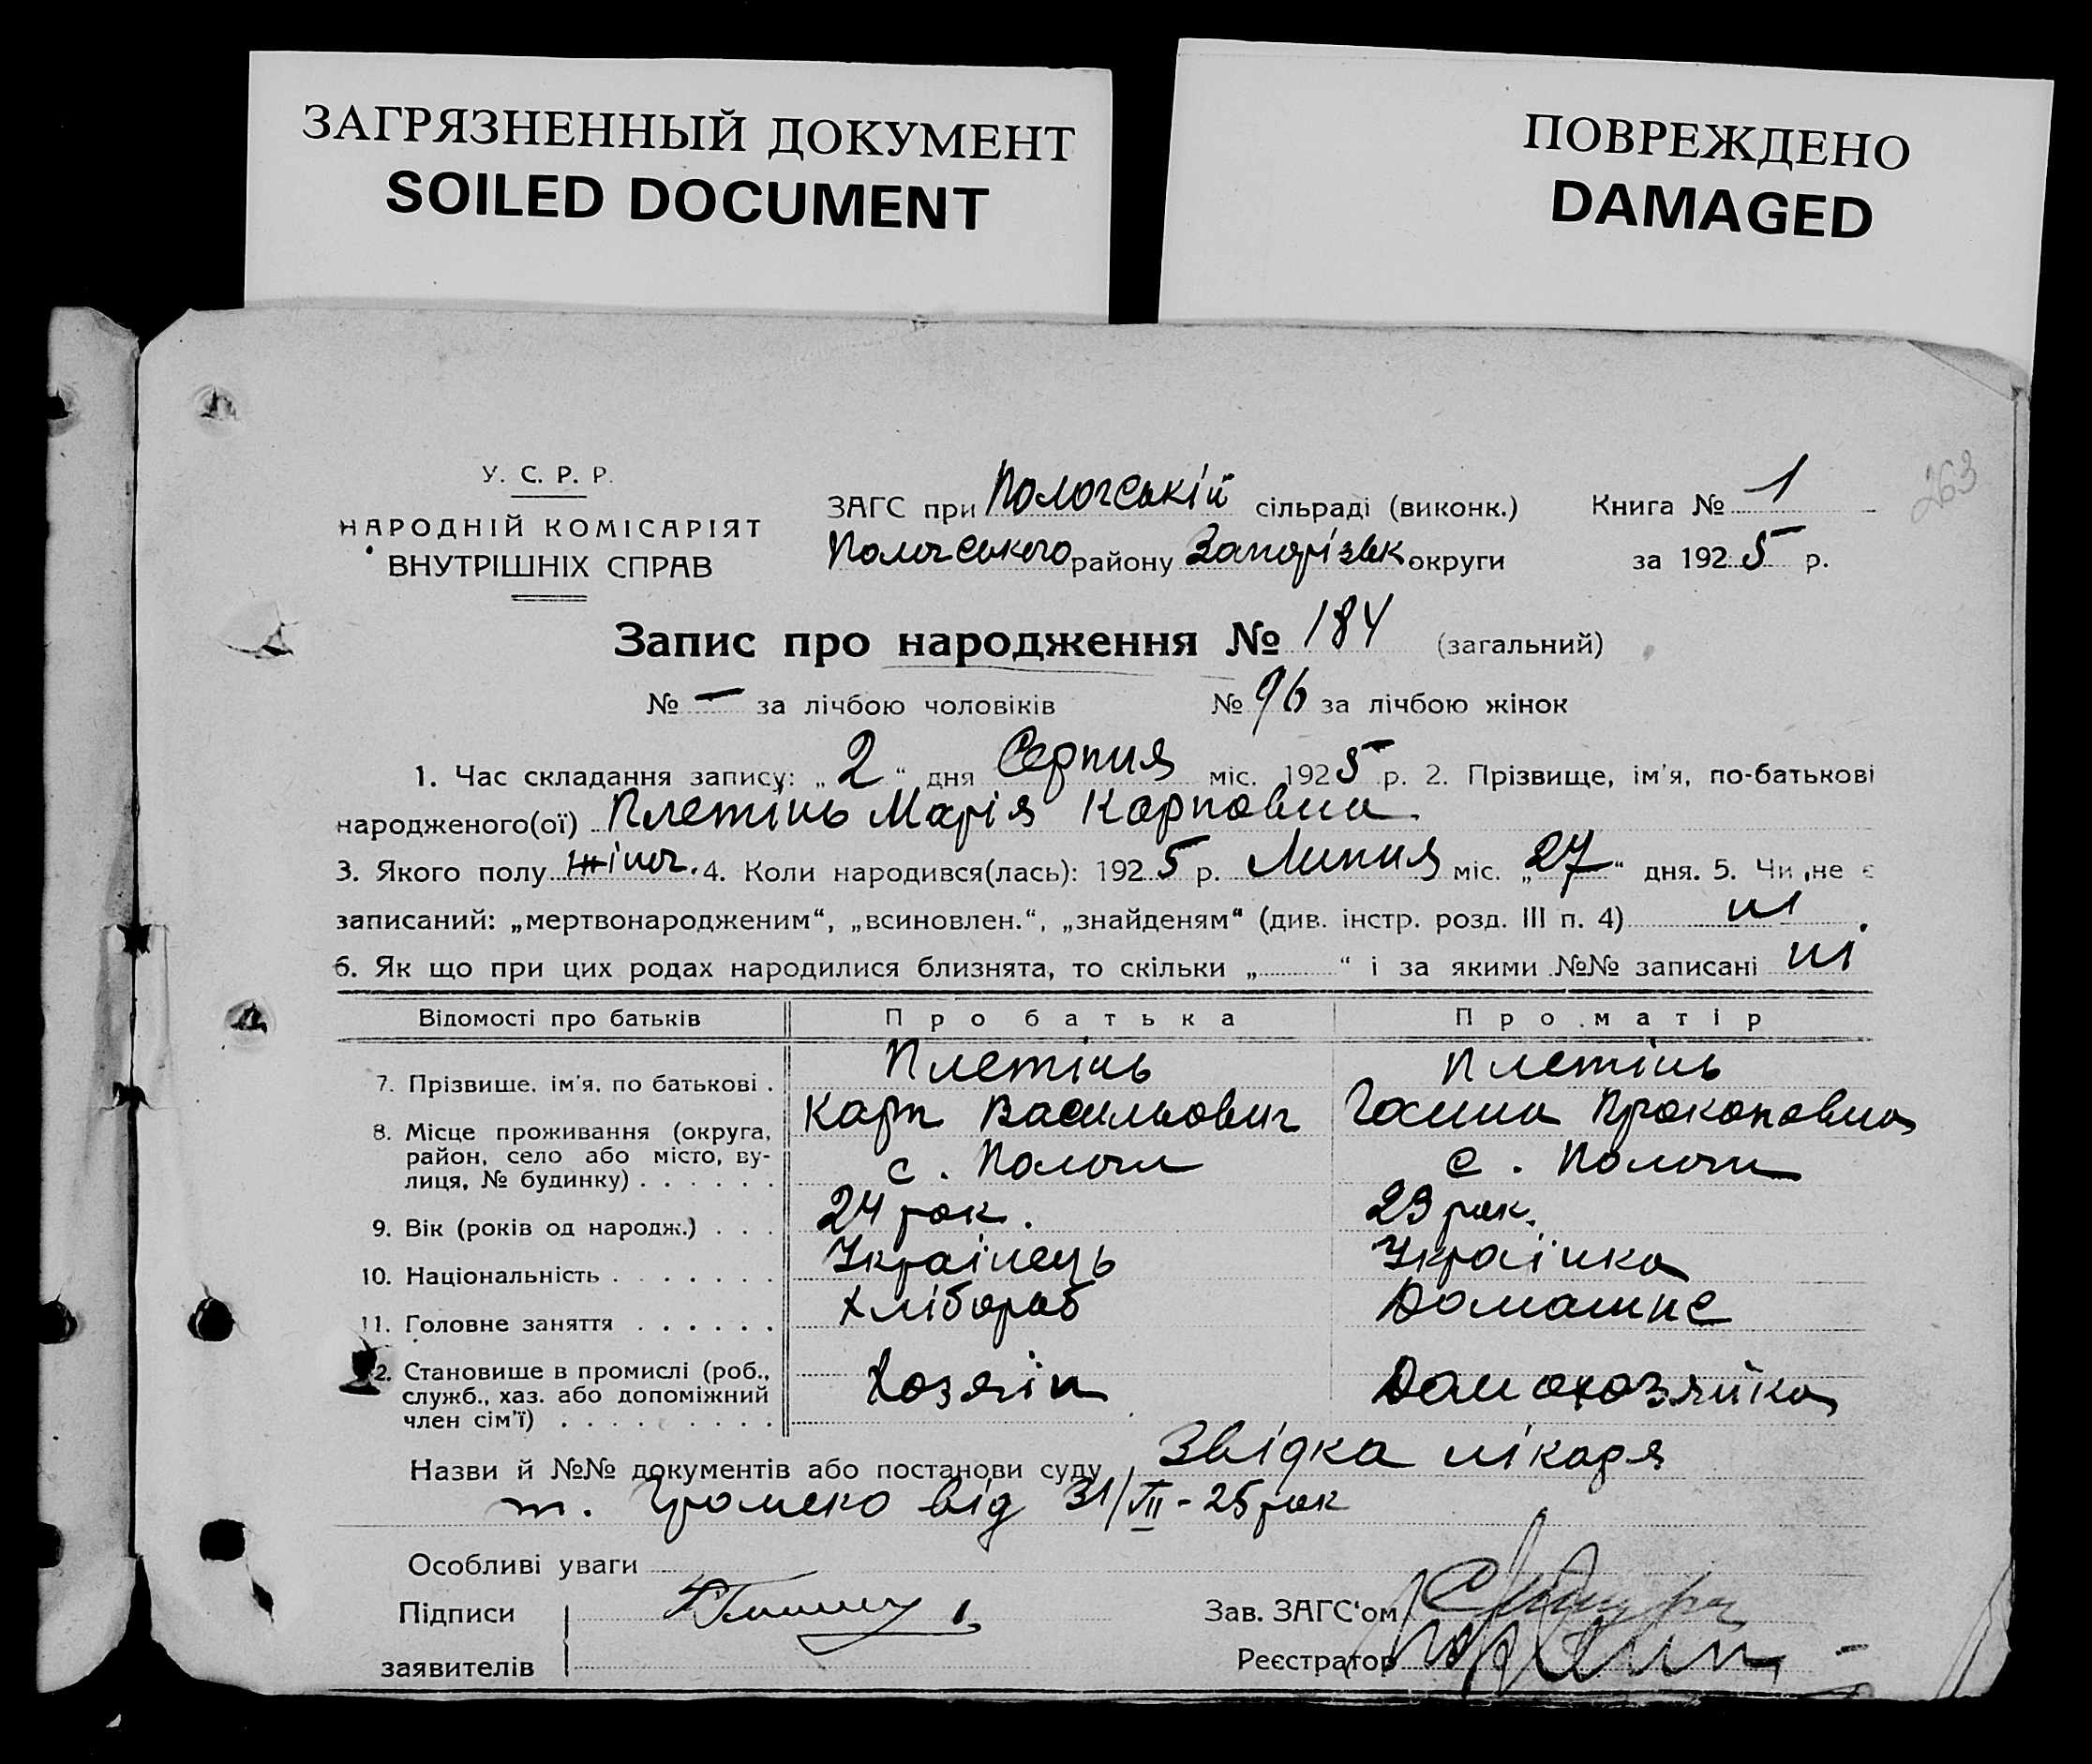 ЗАГРЯЗНЕННЫЙ ДОКУМЕНТ
SOILED DOCUMENT
ПОВРЕЖДЕНО
DAMAGED
263
У. С. Р. Р.
НАРОДНІЙ КОМІСАРІЯТ
ВНУТРІШНІХ СПРАВ
ЗАГС при Пологській сільраді (виконк.) Книга № 1
Пологського району Запорізьк округи за 1925 р.
Запис про народження № 184 (загальний)
№ — за лічбою чоловіків № 96 за лічбою жінок
1. Час складання запису: „2“ дня Серпня міс. 1925 р. 2. Прізвище, ім'я, по-батькові
народженого(ої) Плетінь Марія Карповна.
3. Якого полу жіноч. 4. Коли народився(лась): 1925 р. Липня міс. „27“ дня. 5. Чи не є
записаний: „мертвонародженим“, „всиновлен.“, „знайденям“ (див. інстр. розд. III п. 4) ні.
6. Як що при цих родах народилися близнята, то скільки „ “ і за якими №№ записані ні
Відомості про батьків Про батька Про матір
7. Прізвище, ім'я, по батькові . Плетінь Карп Васильович Плетінь Ганна Прокоповна
8. Місце проживання (округа,
район, село або місто, ву-
лиця, № будинку) . . . . . . с. Пологи с. Пологи
9. Вік (років од народж.) . . . 24 рок. 23 рок.
10. Національність . . . . . . . Українець Українка
11. Головне заняття . . . . . . Хлібороб Домашнє
12. Становище в промислі (роб.,
служб., хаз. або допоміжний
член сім'ї) . . . . . . . . . Хозяїн Домохозяйка
Назви й №№ документів або постанови суду Звідка лікаря
т. Громеко від 31/VII - 25 рок
Особливі уваги
Підписи
заявителів
Зав. ЗАГС'ом
Реєстратор